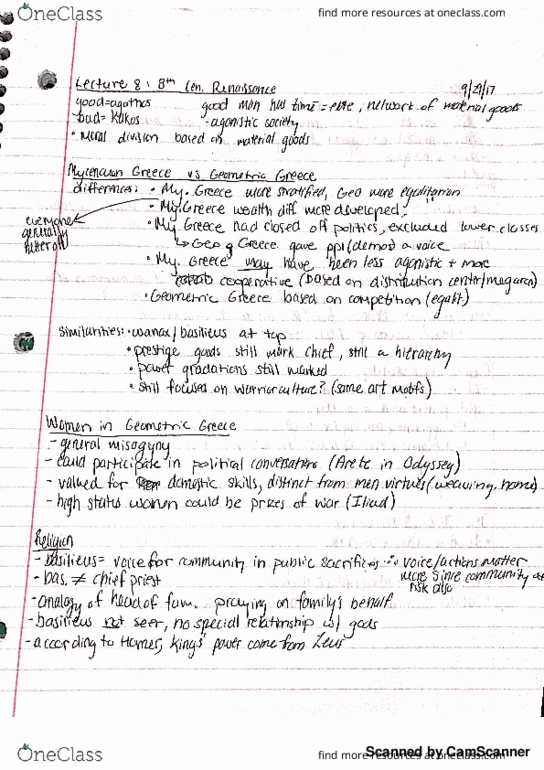 OneClass
find more resources at oneclass.com
Lecture 8: 8th Cen. Renaissance 9/29/17
good=agathos good men has time = elite, network of material goods
-bad=Kakos -agonistic society
• Moral division based on material goods
Mycenaean Greece vs Geometric Greece
differences: • My. Greece more stratified, Geo more egalitarian
• My. Greece wealth diff more developed.
everyone generally better off
• My. Greece had closed off politics, excluded lower classes
↳ Geo. Greece gave ppl (demos) a voice
• My. Greece may have been less agonistic + more
cooperative (based on distribution centr/megaron)
• Geometric Greece based on competition (egalit)
Similarities: • wanax/basilieus at top
• prestige goods still mark chief, still a hierarchy
• power gradations still marked
• still focused on warrior culture? (same art motifs)
Women in Geometric Greece
- general misogyny
- could participate in political conversations (Arete in Odyssey)
- valued for domestic skills, distinct from men virtues (weaving, home)
- high status women could be prizes of war (Iliad)
Religion
- basilieus = voice for community in public sacrifices ∴ voice/actions matter
more since community at
risk also
- bas. ≠ chief priest
- analogy of head of fam. praying on family's behalf
- basilieus not seer, no special relationship w/ gods
- according to Homer, kings' power come from Zeus
OneClass
find more resources at oneclass.com
Scanned by CamScanner